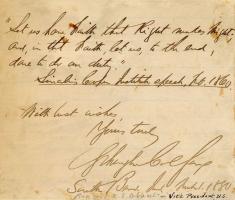 "Let us have faith that Right makes Might,
and, in that Faith let us, to the end,
dare to do our duty"
Lincoln's Cooper Institute speech, 1860
With best wishes
Yours truly
Schuyler Colfax
South Bend 1880
Vice President U.S.